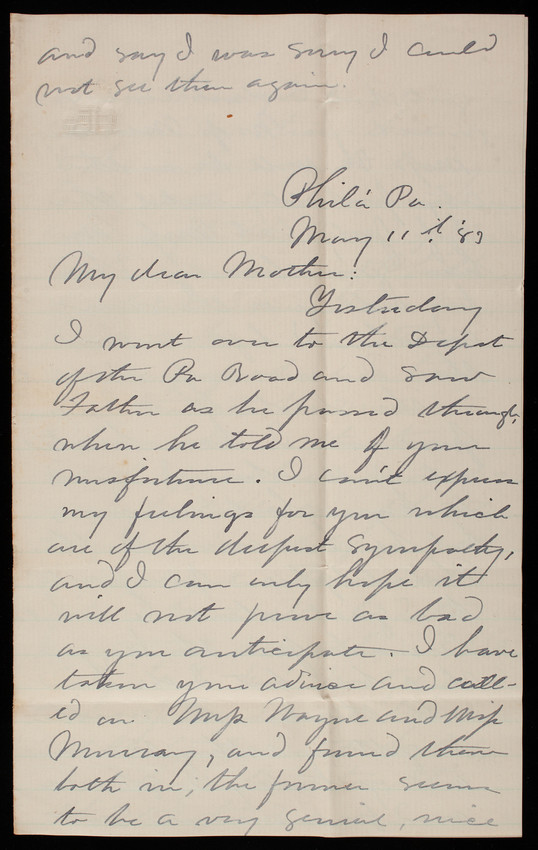 and say I was sorry I could
not see them again.
Phil'a Pa.
May 11th '83
My dear Mother:
Yesterday
I went over to the Depot
of the Pa Road and saw
Father as he passed through,
when he told me of your
misfortune. I can't express
my feelings for you which
are of the deepest sympathy,
and I can only hope it
will not prove as bad
as you anticipate. I have
taken your advice and call-
ed on Miss Wayne and Miss
Murray, and found them
both in; the former seems
to be a very genial, nice